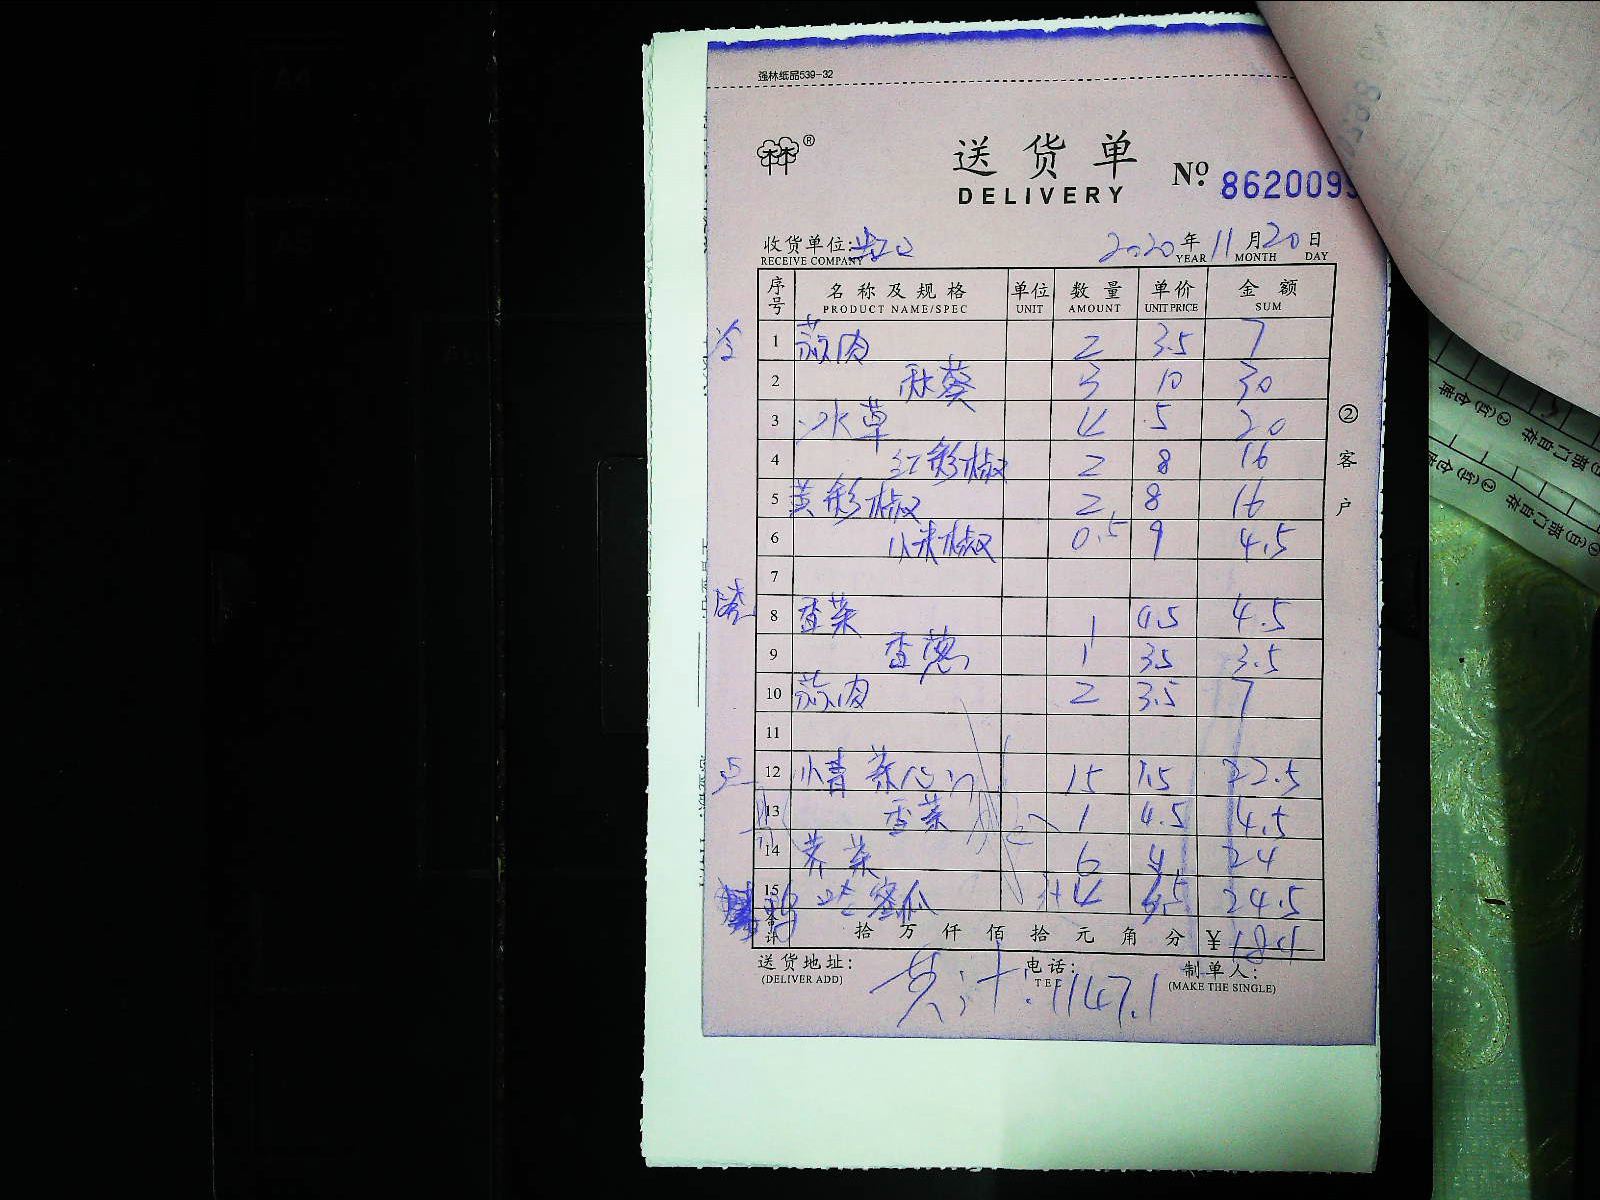 强林纸品539-32
林 ®
送货单
DELIVERY
Nº 8620099
收货单位:
RECEIVE COMPANY
2020 年 11 月 20 日
YEAR MONTH DAY
序号 名称及规格 单位 数量 单价 金额
PRODUCT NAME/SPEC UNIT AMOUNT UNIT PRICE SUM
冷 1 蒜肉 2 3.5 7
2 秋葵 3 10 30
3 水草 4 5 20
4 红彩椒 2 8 16
5 黄彩椒 2 8 16
6 小米椒 0.5 9 4.5
7
烧 8 香菜 1 4.5 4.5
9 香葱 1 3.5 3.5
10 蒜肉 2 3.5 7
11
点 12 小青菜心 15 1.5 22.5
13 香菜 1 4.5 4.5
14 荠菜 6 4 24
15 蜜瓜 24.5
合计 拾 万 仟 佰 拾 元 角 分 ¥ 184
送货地址: 电话: 制单人:
(DELIVER ADD) TEL (MAKE THE SINGLE)
共计:1147.1
② 客户